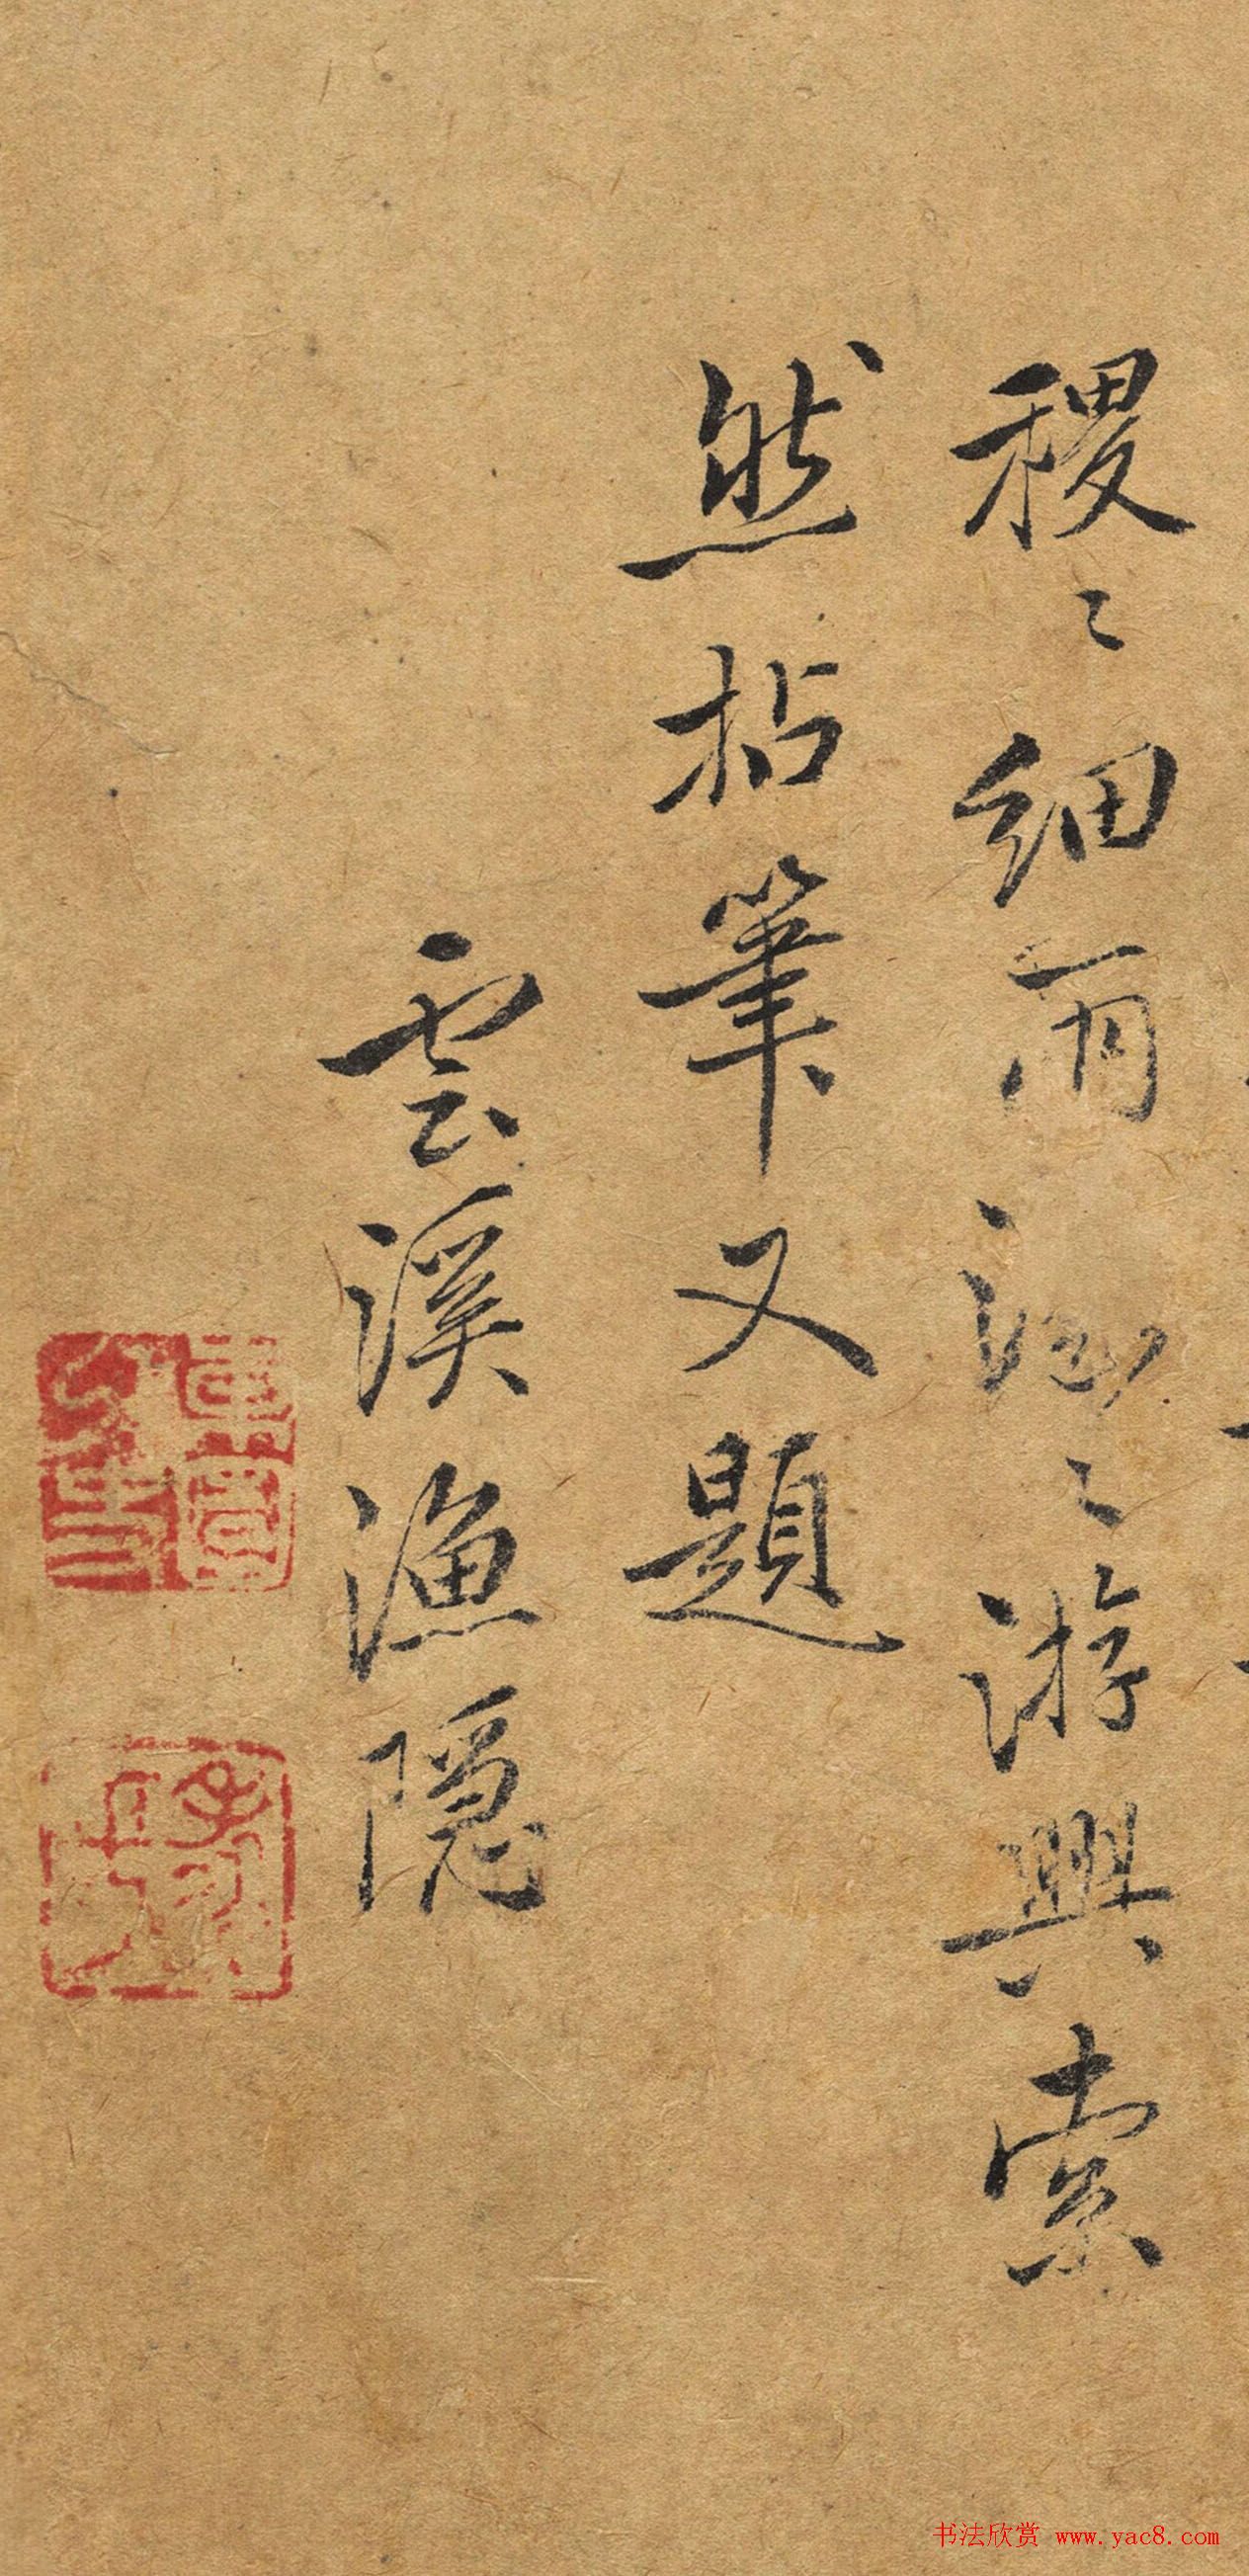 稷〻細雨溦〻游興索
然拈筆又題
雲溪漁隱
书法欣赏 www.yac8.com